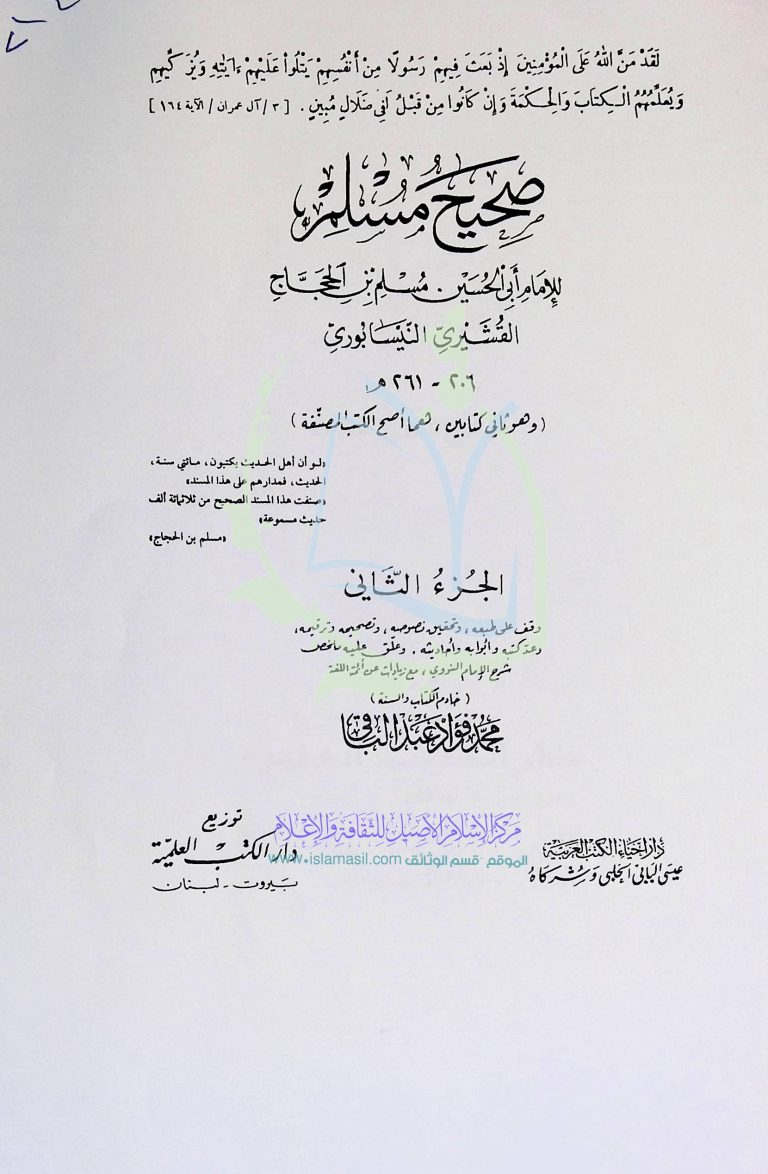 لَقَدْ مَنَّ اللهُ عَلَى الْمُؤْمِنِينَ إِذْ بَعَثَ فِيهِمْ رَسُولًا مِنْ أَنْفُسِهِمْ يَتْلُوا عَلَيْهِمْ ءَايَٰتِهِ وَيُزَكِّيهِمْ
وَيُعَلِّمُهُمُ الْكِتَابَ وَالْحِكْمَةَ وَإِنْ كَانُوا مِنْ قَبْلُ لَفِي ضَلَالٍ مُبِينٍ . [ ٣/آل عمران / الآية ١٦٤ ]
صَحِيحُ مُسْلِمْ
لِلإِمَامِ أَبِي الْحُسَيْنِ مُسْلِمِ بْنِ الْحَجَّاجِ
القُشَيْرِيِّ النَّيْسَابُورِيِّ
٢٠٦ - ٢٦١ هـ
( وهو ثاني كتابين ، هما أصح الكتب المصنّفة )
«لـو أن أهل الحـديث يكتبون، مـائتي سنـة،
الحديث، فمدارهم على هذا المسند»
«صنفت هذا المسند الصحيح من ثلاثمائة ألف
حديث مسموعة»
«مسلم بن الحجاج»
الجُزءُ الثَّانِى
وقف على طبعه ، وتحقيق نصوصه ، وتصحيحه وترقيمه ،
وعدّ كتبه وأبوابه وأحاديثه . وعلّق عليه ملخص
شرح الإمام النووي ، مع زيادات عن أئمّة اللغة
( خادم الكتاب والسنة )
محمّد فُؤاد عَبْد البَاقِي
توزيع
دار الكتب العلميّة
بَيروت - لبنان
مركز الإسلام الأصيل للثقافة والإعلام
الموقع - قسم الوثائق www.islamasil.com
دَار إحيَاء الكتب العَربيَّة
عيسَى البَابي الحَلبي وَشُركَاهُ